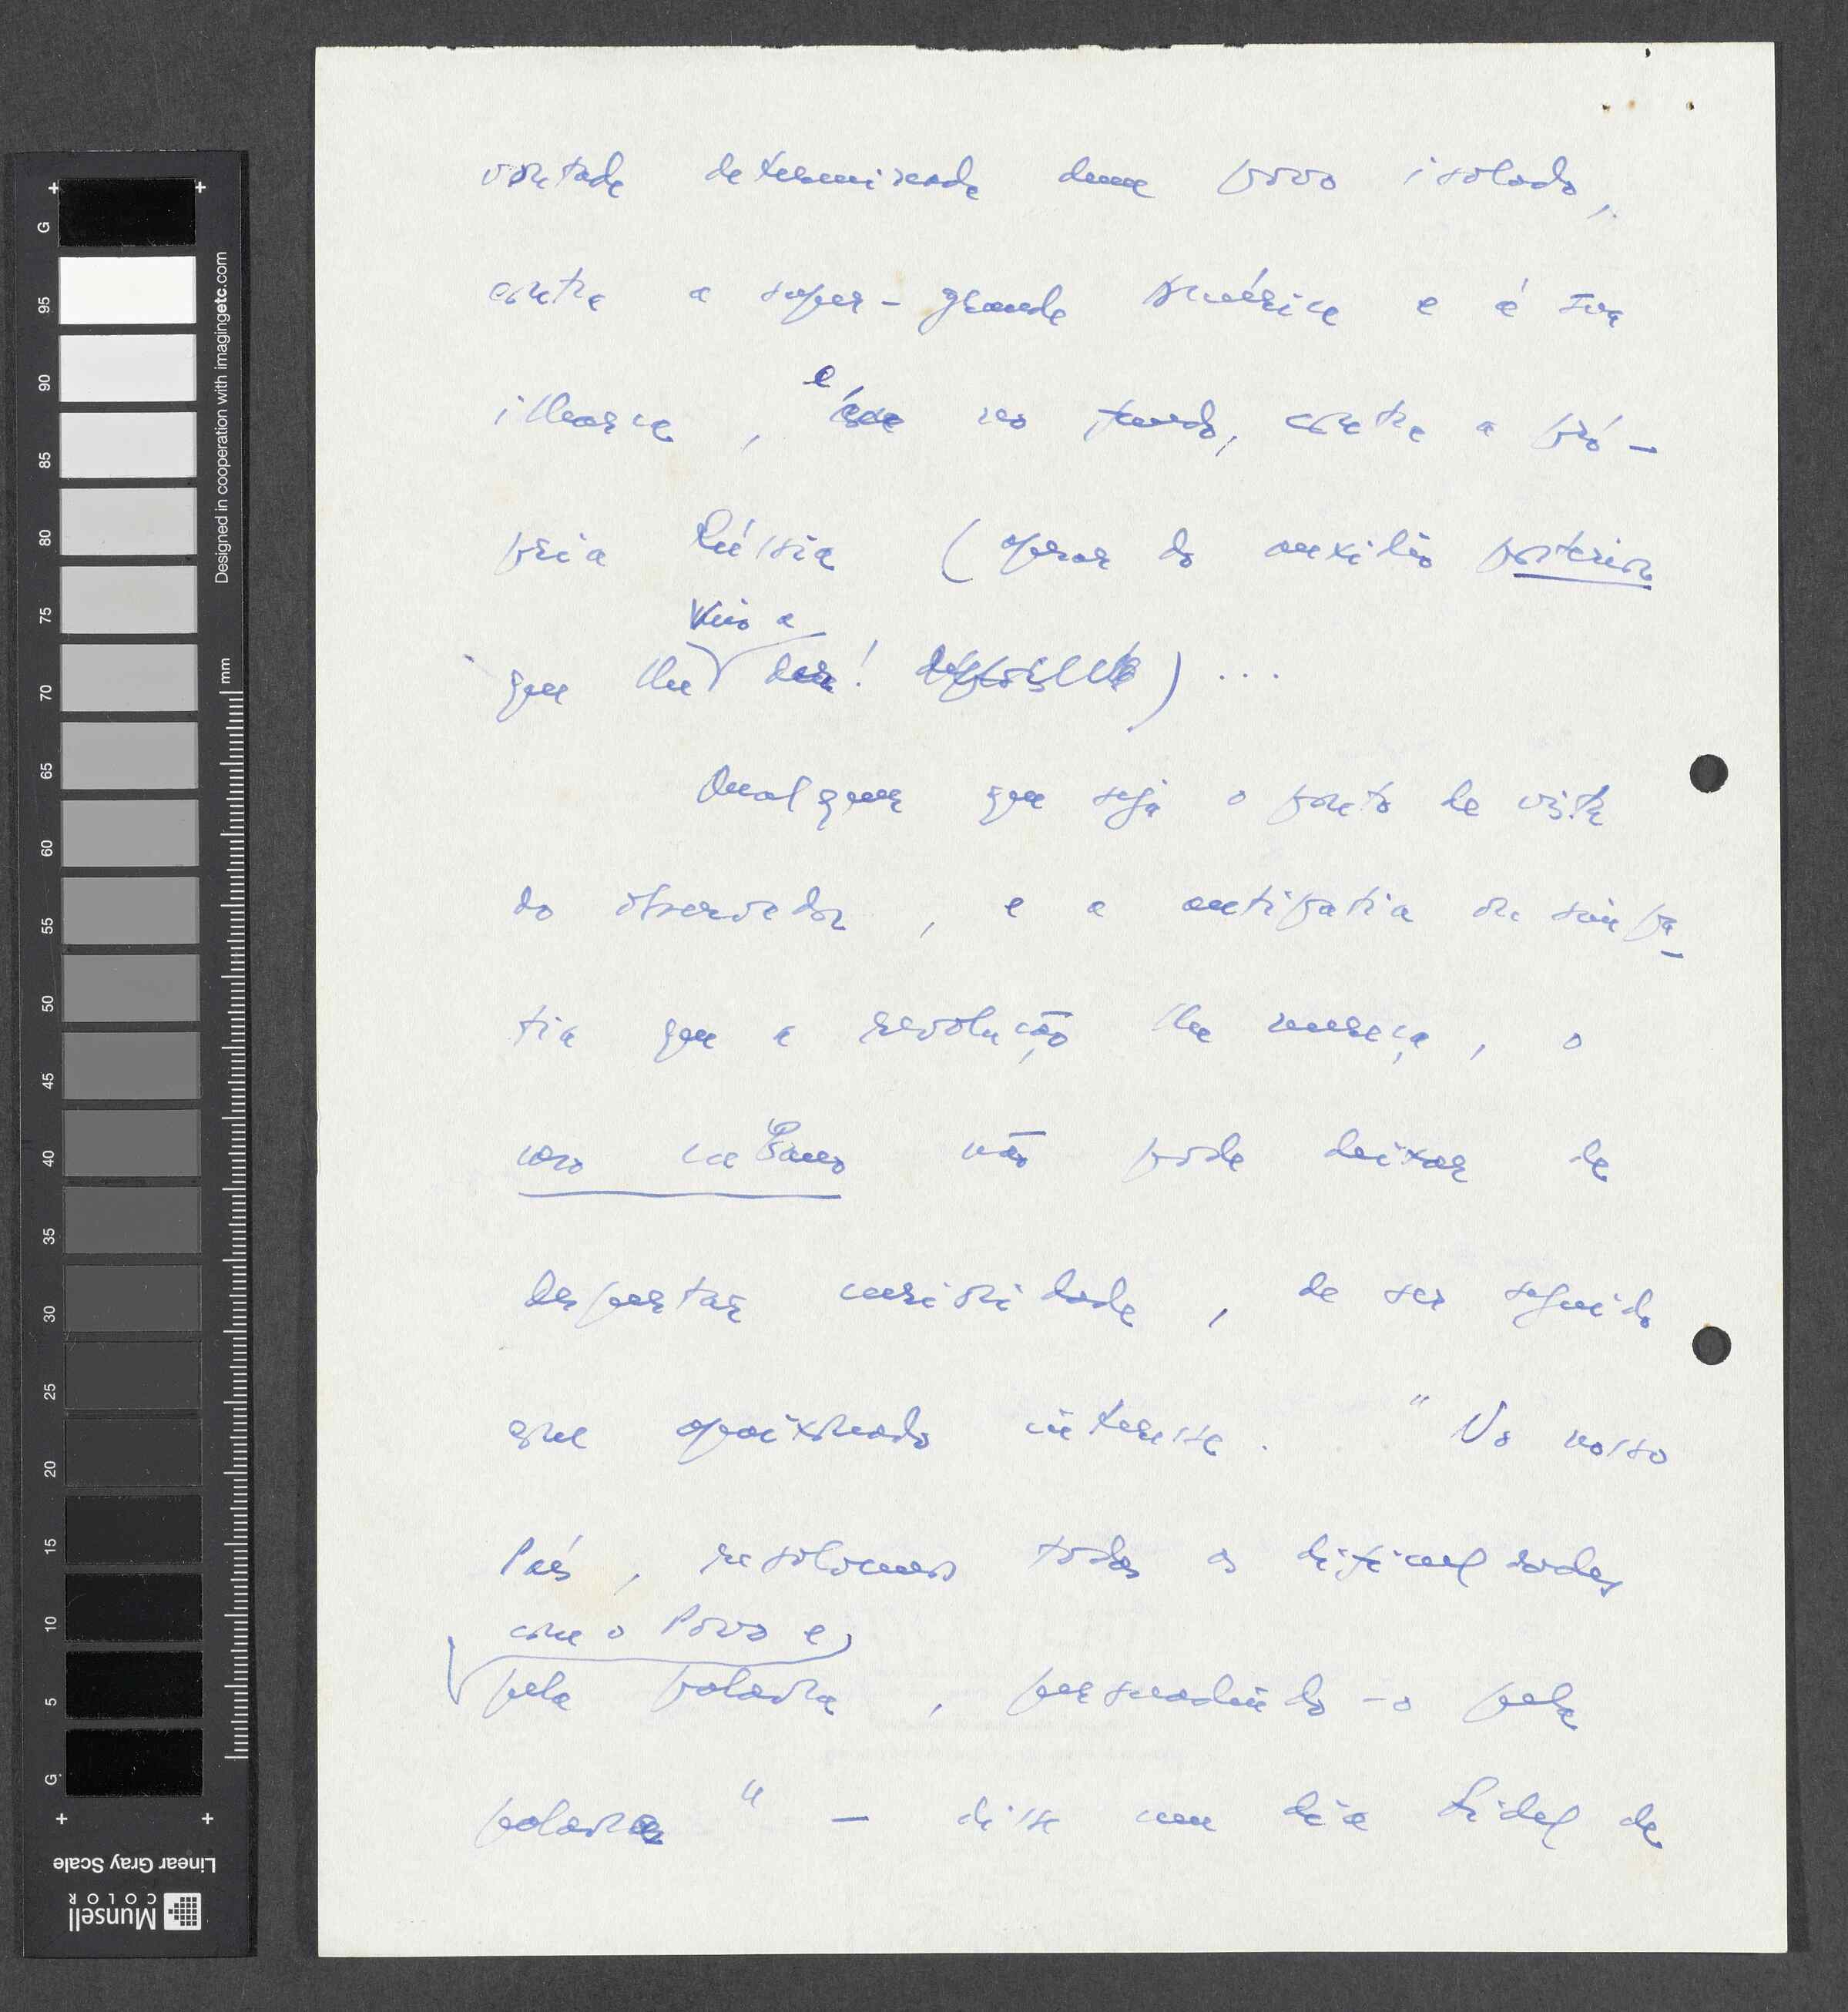 vontade determinada dum povo isolado,
contra a super-grande América e à sua
ilharga, e, no fundo, contra a pró-
pria Rússia (apesar do auxílio posterior
que lhe veio a dar! ) ...
Qualquer que seja o ponto de vista
do observador, e a antipatia ou simpa-
tia que a revolução lhe mereça, o
caso cubano não pode deixar de
despertar curiosidade, de ser seguido
com apaixonado interesse. "No nosso
País, resolvemos todas as dificuldades
com o Povo e
pela palavra, persuadindo-o pela
palavra" — disse um dia Fidel de
G 95 90 85 80 75 70 65 60 55 50 45 40 35 30 25 20 15 10 5 G
Designed in cooperation with imagingetc.com
mm
Linear Gray Scale
Munsell
COLOR